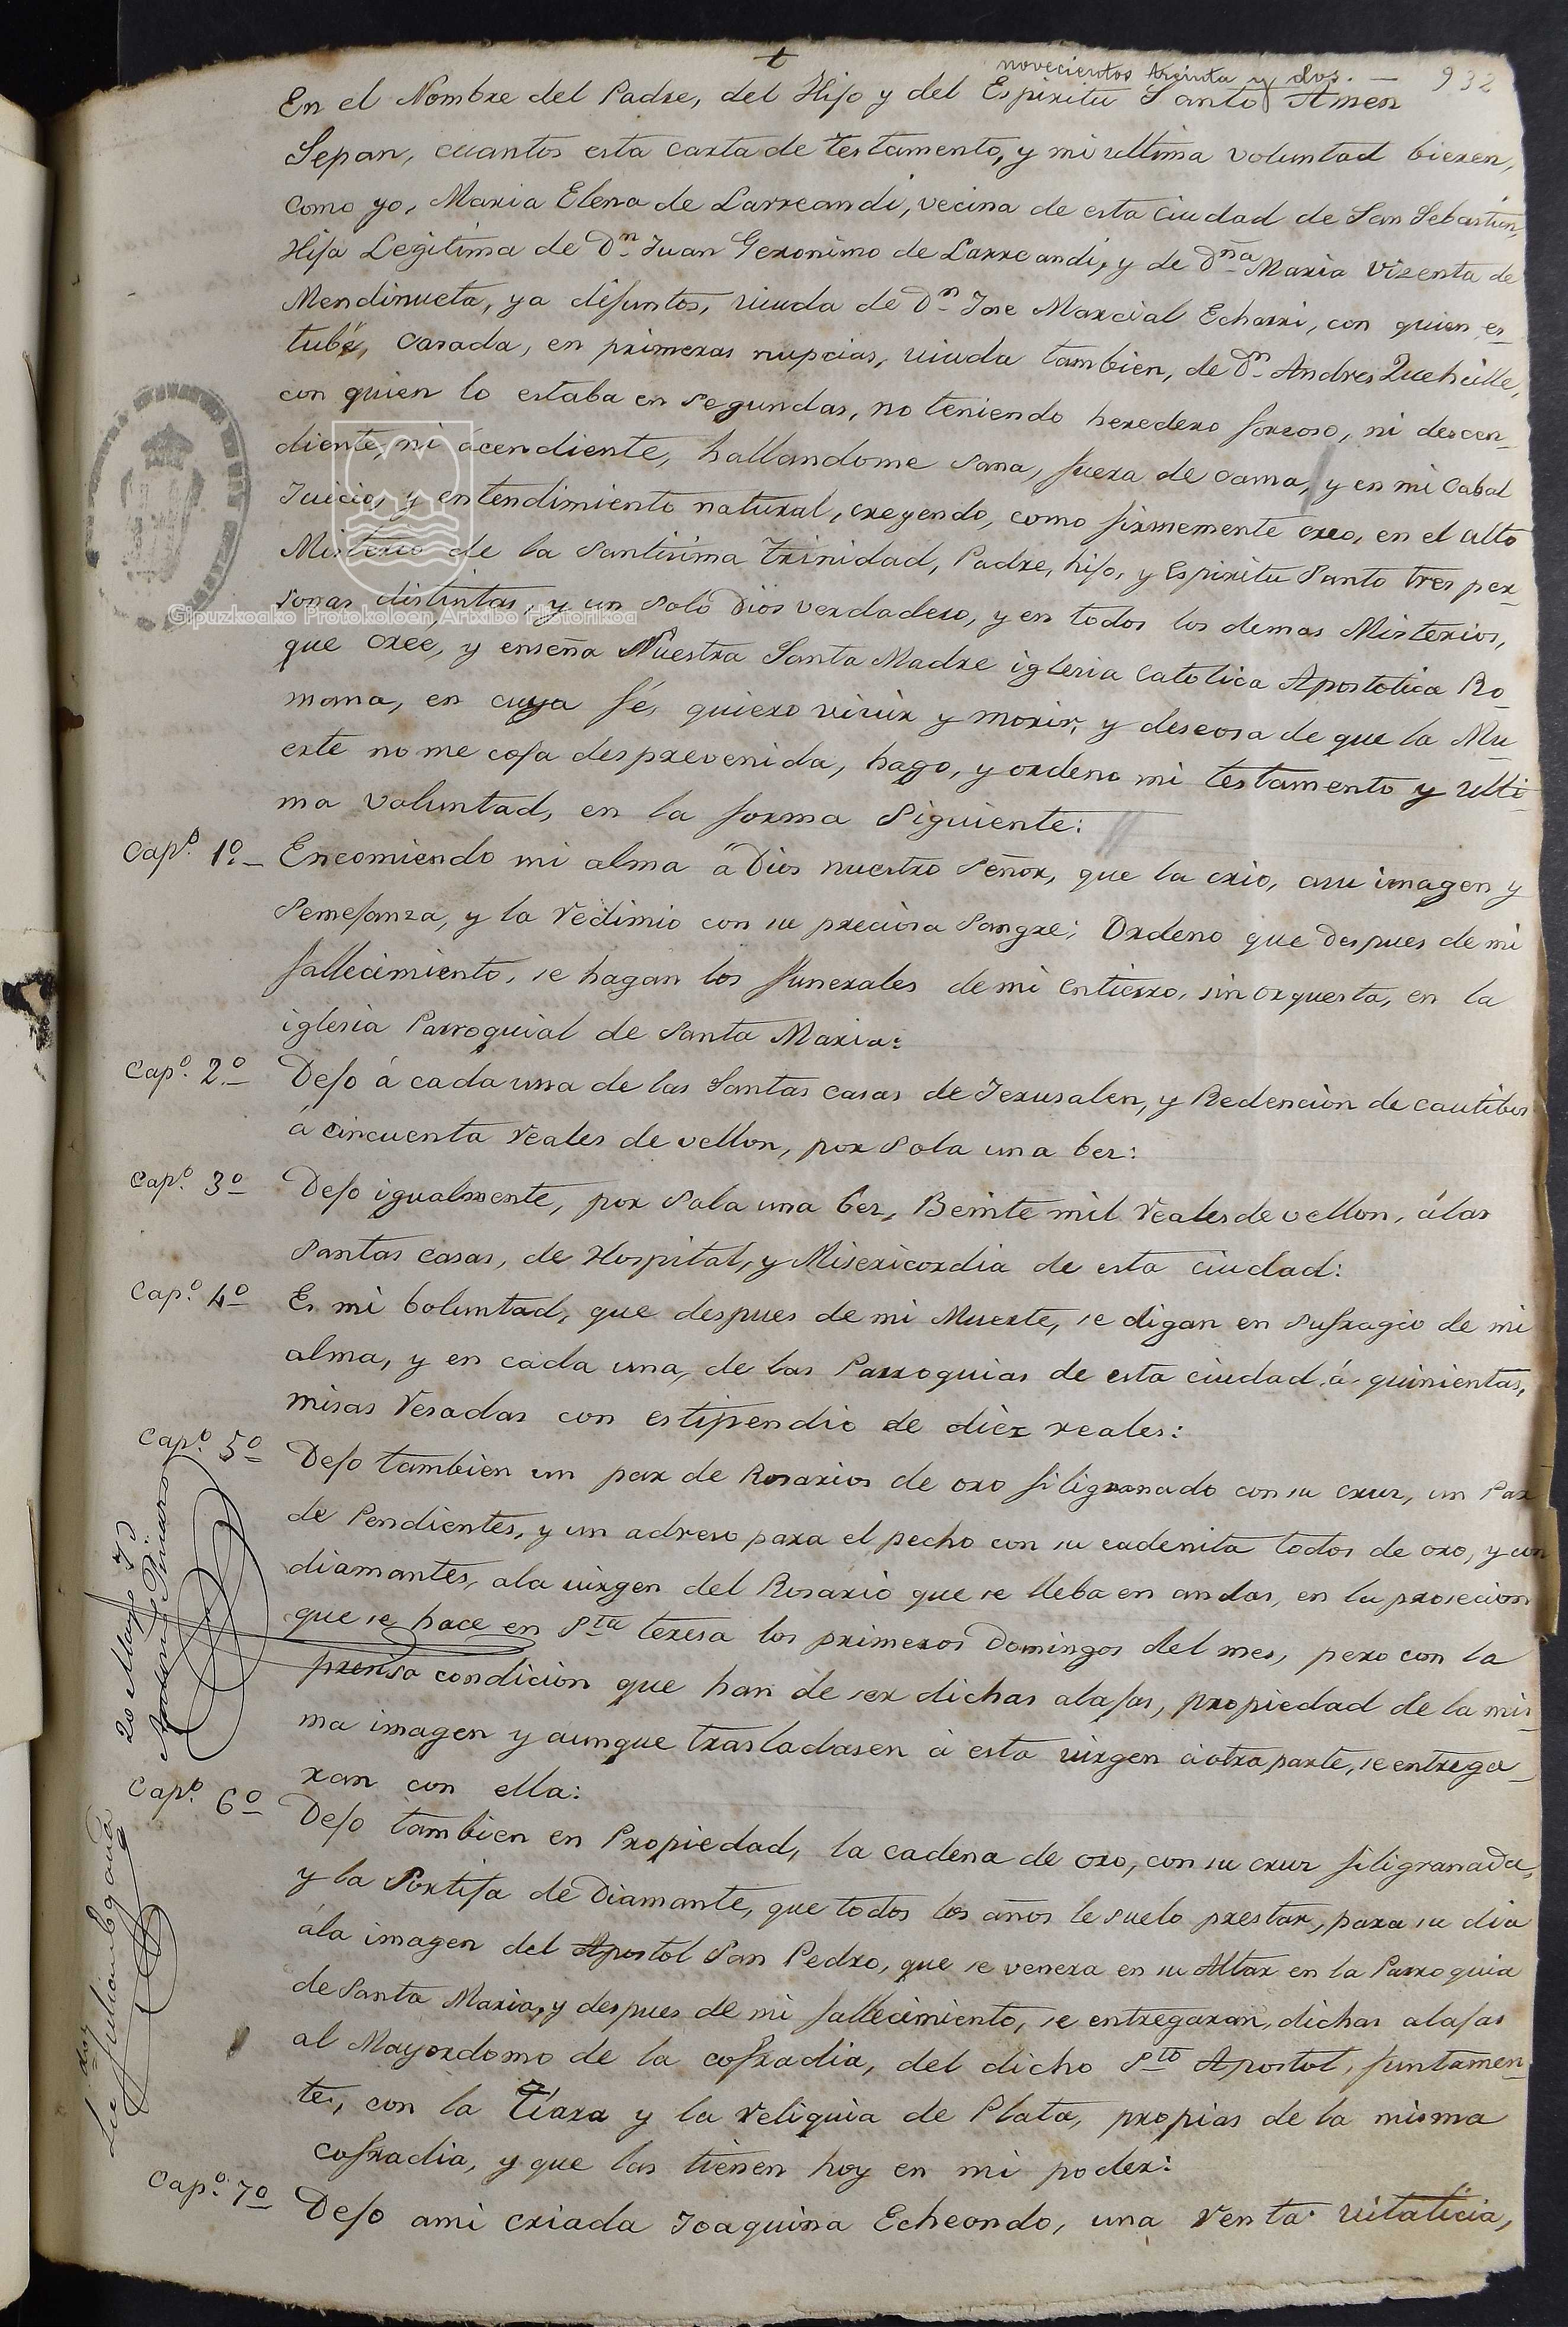 novecientos treinta y dos. — 932
En el Nombre del Padre, del Hijo y del Espiritu Santo Amen
Sepan, cuantos esta carta de testamento, y mi ultima voluntad bieren,
como yo, Maria Elena de Larreandi, vecina de esta Ciudad de San Sebastian,
Hija Legitima de Dn. Juan Geronimo de Larreandi, y de Dña Maria Vizenta de
Mendinueta, ya difuntos, viuda de Dn. Jose Marcial Echarri, con quien es-
tubé, casada, en primeras nupcias, viuda tambien, de Dn. Andres
con quien lo estaba en segundas, no teniendo heredero forzoso, ni descen-
diente, ni ácendiente, hallandome sana, fuera de cama, y en mi cabal
Juicio, y entendimiento natural, creyendo, como firmemente creo, en el alto
Misterio de la Santisima Trinidad, Padre, hijo, y Espiritu Santo tres per-
sonas distintas, y un solo Dios verdadero, y en todos los demas Misterios,
Gipuzkoako Protokoloen Artxibo Historikoa
que cree, y enseña Nuestra Santa Madre iglesia catolica Apostolica Ro-
mana, en cuya fé, quiero vivir y morir, y deseosa de que la Mu
erte no me coja desprevenida, hago, y ordeno mi testamento y ulti
ma voluntad, en la forma Siguiente:
Capo. 1o.- Encomiendo mi alma á Dios nuestro Señor, que la crio, asu imagen y
Semejanza, y la redimio con su preciosa Sangre; Ordeno que despues de mi
fallecimiento, se hagan los funerales de mi entierro, sin orquesta, en la
iglesia Parroquial de Santa Maria:
Capo. 2o.- Dejo á cada una de las Santas casas de Jerusalen, y Redencion de cautibos
á cincuenta reales de vellon, por sola una bez:
Capo. 3o Dejo igualmente, por sola una bez, Beinte mil reales de vellon, álas
Santas casas, de Hospital, y Misericordia de esta ciudad:
Capo. 4o Es mi boluntad, que despues de mi Muerte, se digan en sufragio de mi
alma, y en cada una, de las Parroquias de esta ciudad, á quinientas,
misas resadas con estipendio de diez reales:
Capo. 5o Dejo tambien un par de Rosarios de oro filigranado con su cruz, un Par
de Pendientes, y un adreso para el pecho con su cadenita todos de oro, y con
diamantes, ala virgen del Rosario que se lleba en andas, en la prosecion
que se hace en Sta teresa los primeros Domingos del mes, pero con la
prensisa condicion que han de ser dichas alajas, propiedad de la mis-
ma imagen y aunque trasladasen á esta virgen áotra parte, se entrega-
ran con ella:
Capo. 6o Dejo tambien en Propiedad, la cadena de oro, con su cruz filigranada,
y la Sortija de Diamante, que todos los años le suelo prestar, para su dia
ála imagen del Apostol San Pedro, que se venera en su Altar en la Parroquia
de Santa Maria, y despues de mi fallecimiento, se entregaran, dichas alajas
al Mayordomo de la cofradia, del dicho Sto Apostol, juntamen-
te, con la tiara y la reliquia de Plata, propias de la misma
cofradia, y que las tienen hoy en mi poder:
Capo. 7o Dejo ami criada Joaquina Echeondo, una renta vitalicia,
20 Mayo